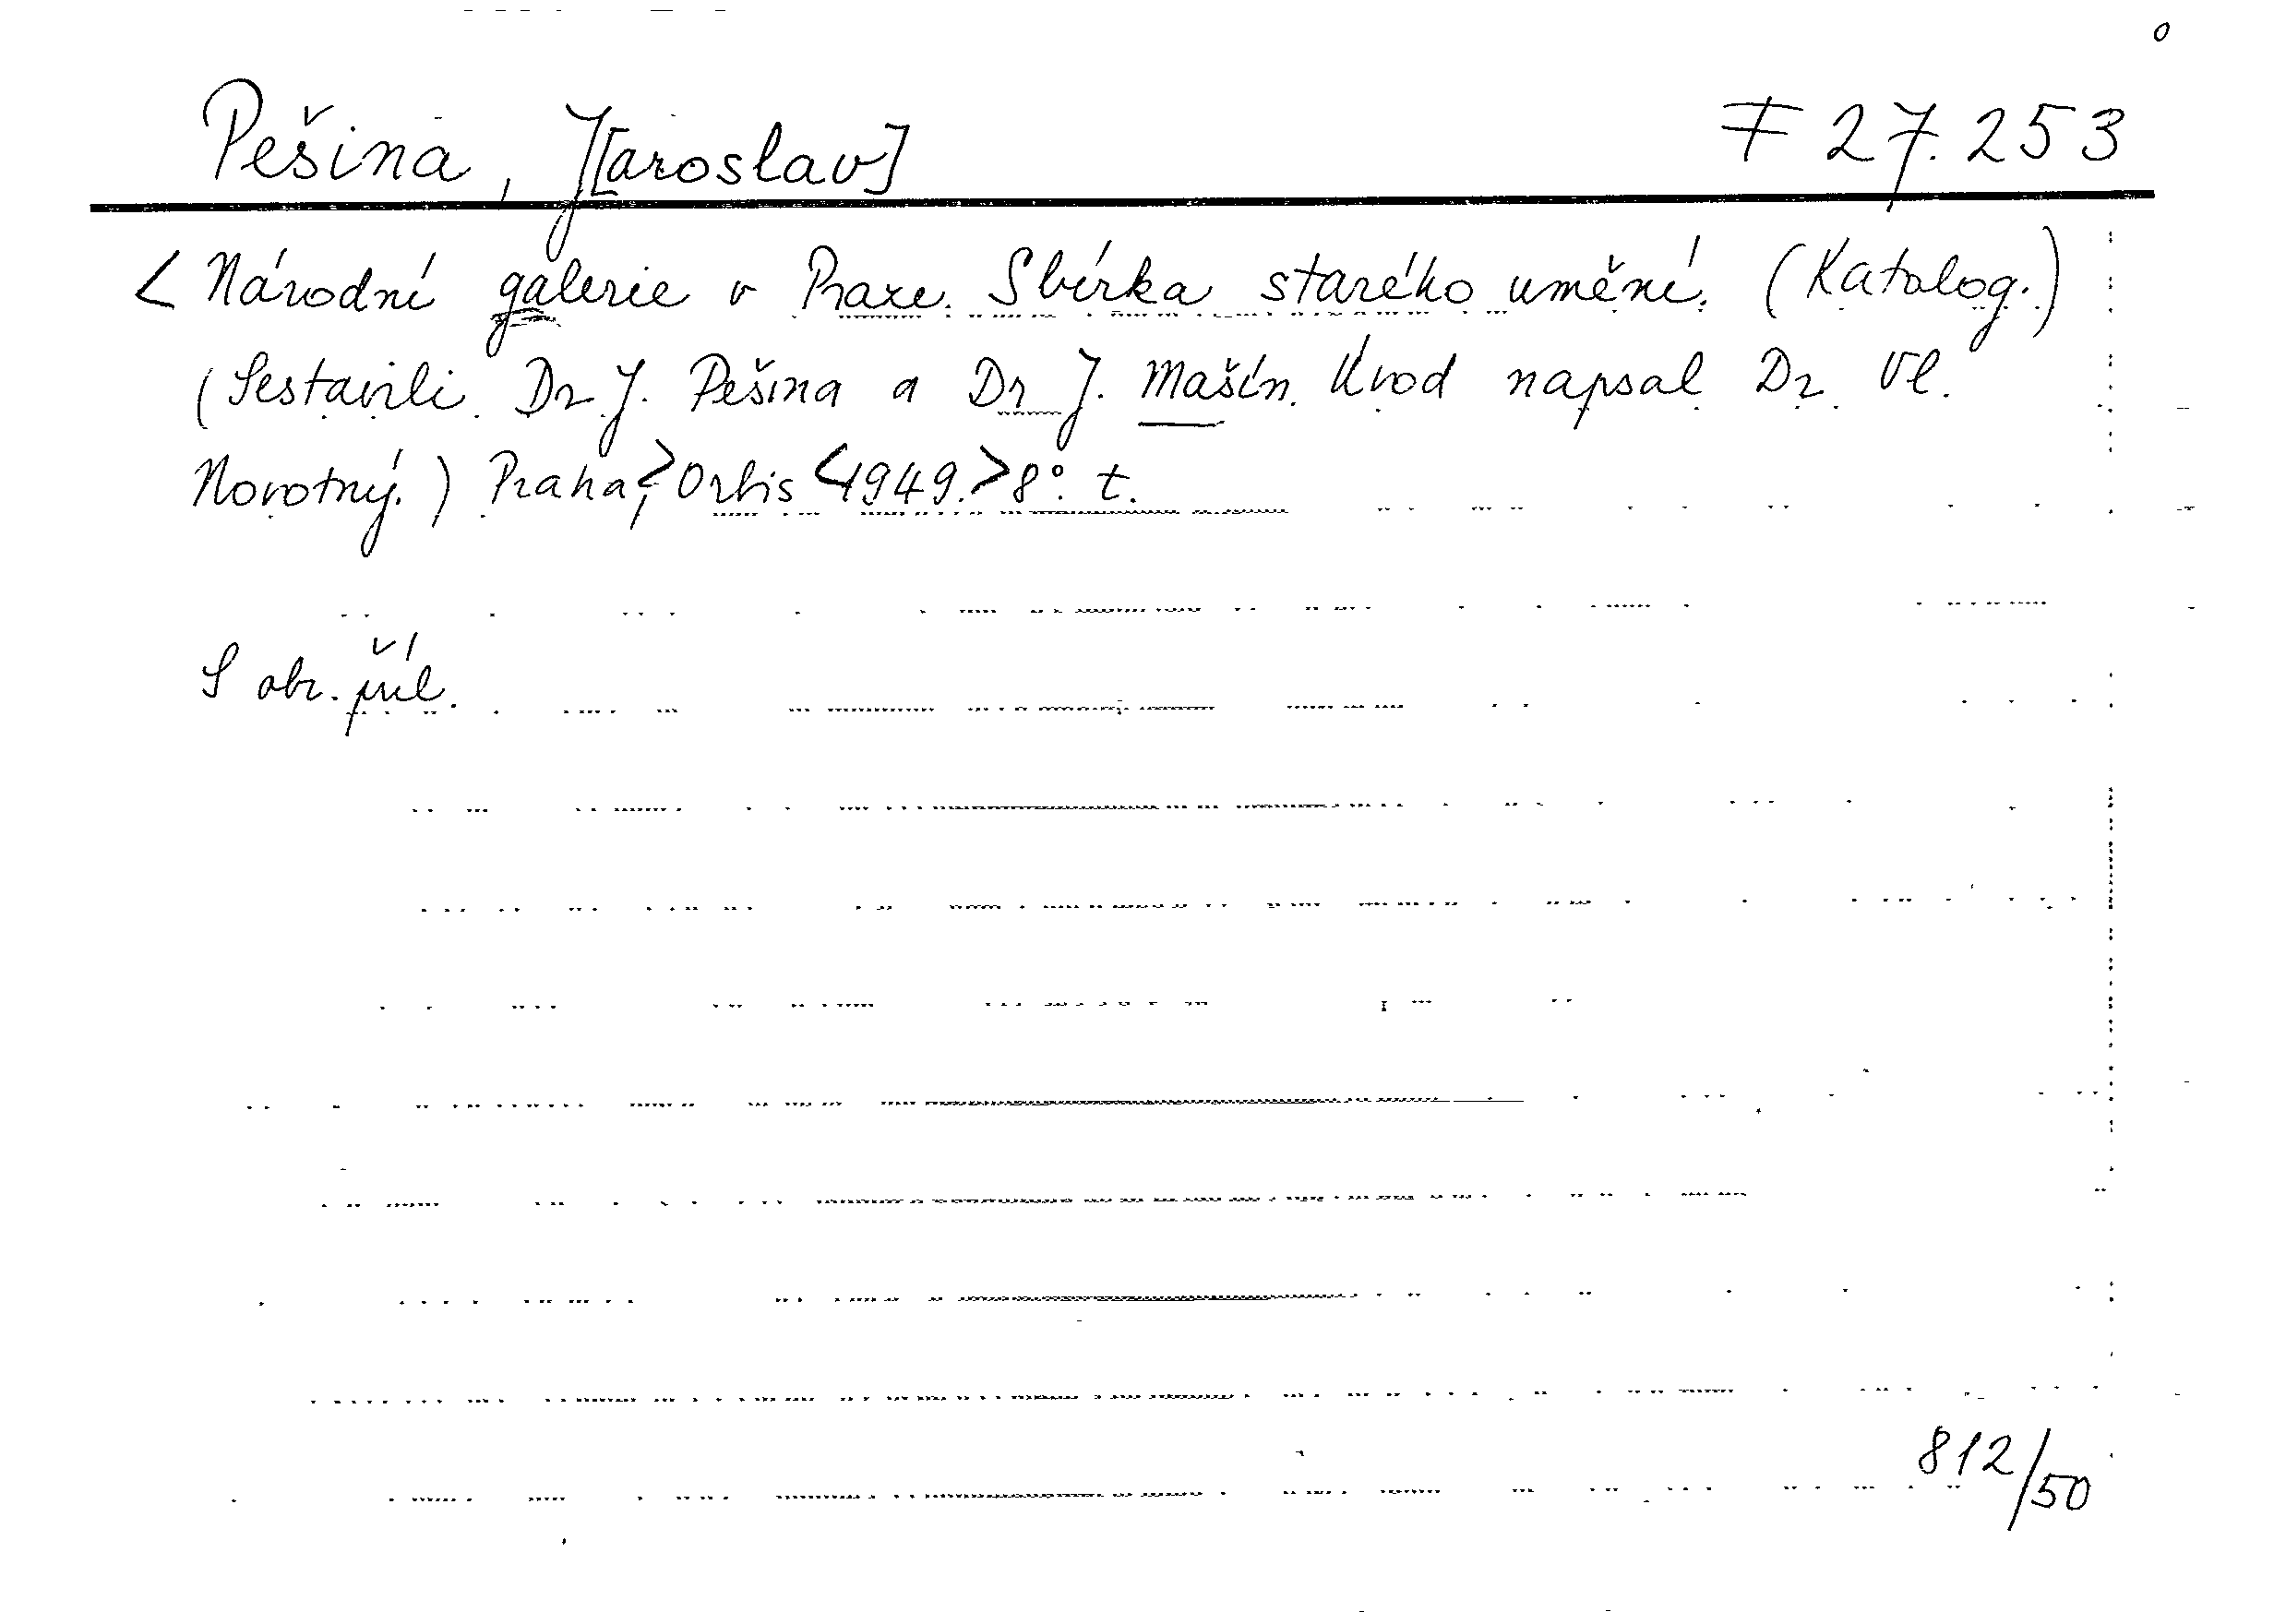 o
Pešina, J[aroslav] F 27.253
< Národní galerie v Praze. Sbírka starého umění. (Katalog.)
(Sestavili Dr J. Pešina a Dr J. Mašín. Úvod napsal Dr. Vl.
Novotný.) Praha,> Orbis <1949.> 8°. t.
S obr. příl.
812/50